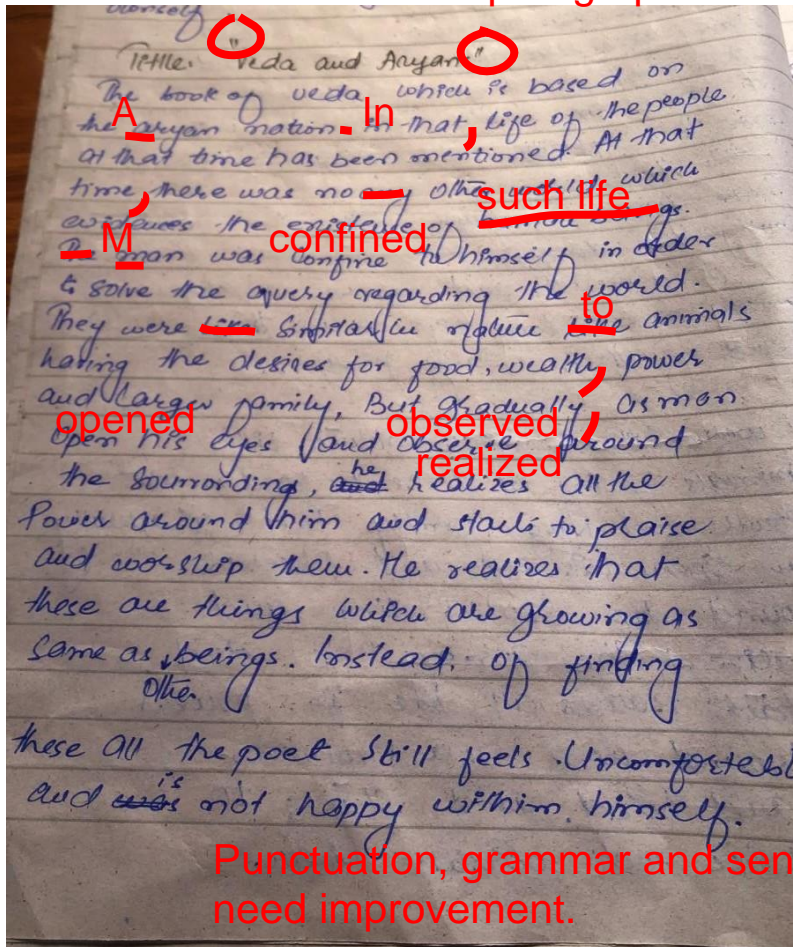 himself
Tittle. "Veda and Aryan."
The book of veda which is based on
A In ,
the aryan nation. in that, life of the people
at that time has been mentioned. At that
time, there was no other world which
such life
evidences the existense of human beings.
M confined
The man was confine to himself in order
to solve the query regarding the world.
to
They were like similar in nature like animals
having the desires for food, wealth, power
and larger family, But gradually, as man
opened observed
open his eyes and observe around
realized
the sourrondings, and he realizes all the
Power around him and starts to praise
and worship them. He realizes that
these are things which are growing as
same as beings. Instead. of finding
other
these all the poet still feels. Uncomfortabl
is
and was not happy withim himself.
Punctuation, grammar and sen
need improvement.